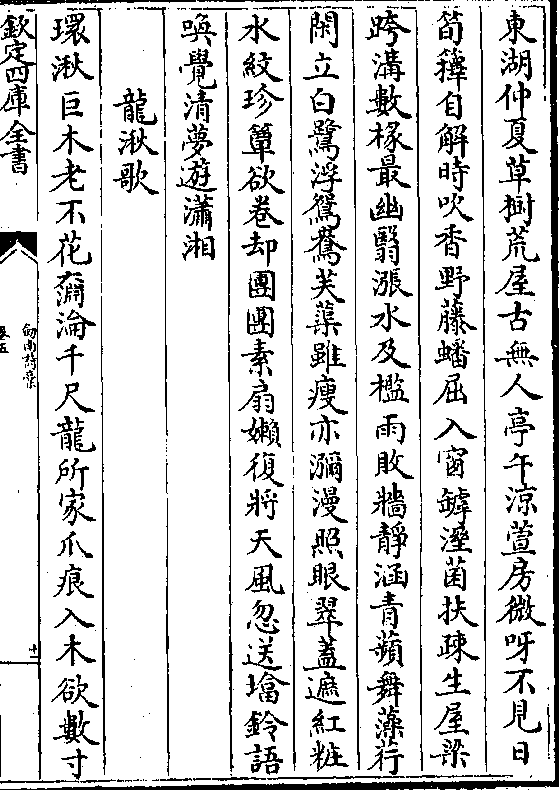 東湖仲夏草樹荒屋古無人亭午涼萱房微呀不見日
筍籜自解時吹香野藤蟠屈入窗罅溼菌扶疎生屋梁
跨溝數椽最幽翳漲水及檻雨敗牆靜涵青蘋舞藻荇
閑立白鷺浮鴛鴦芙蕖雖瘦亦瀰漫照眼翠蓋遮紅粧
水紋珍簟欲卷却團團素扇嬾復將天風忽送塔鈴語
喚覺清夢遊瀟湘
龍湫歌
環湫巨木老不花瀰淪千尺龍所家爪痕入木欲數寸
欽定四庫全書
劍南詩稾
卷五
十二